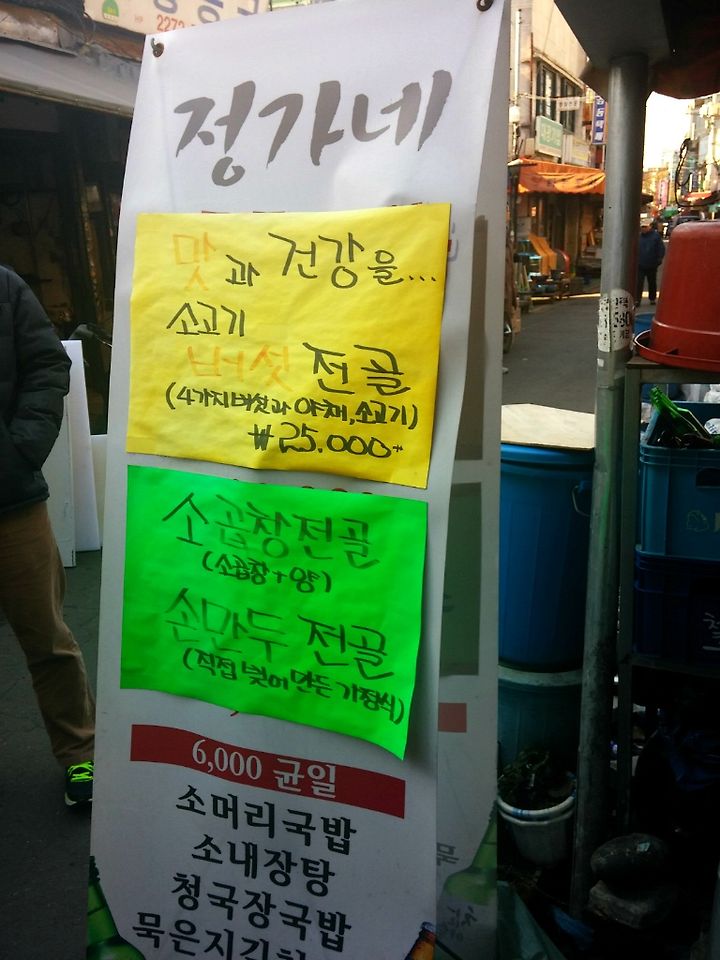 정가네
맛과 건강을...
소고기
버섯 전골
(4가지버섯과 야채,소고기)
₩25.000
소곱창전골
(소곱창+양)
손만두 전골
(직접 빚어 만든 가정식)
6,000 균일
소머리국밥
소내장탕
청국장국밥